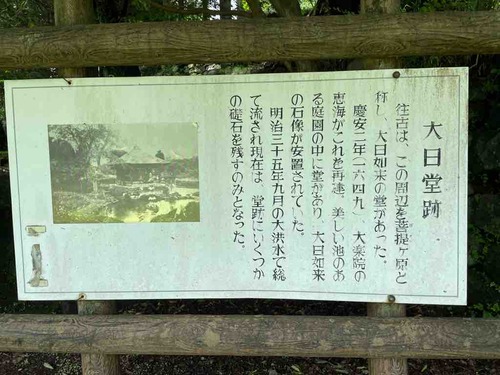 大日堂跡
往古は、この周辺を菩提ヶ原と
称し、大日如来の堂があった。
慶安二年（一六四九）、大楽院の
恵海がこれを再建、美しい池のあ
る庭園の中に堂があり、大日如来
の石像が安置されていた。
明治三十五年九月の大洪水で総
て流され現在は、堂跡にいくつか
の礎石を残すのみとなった。